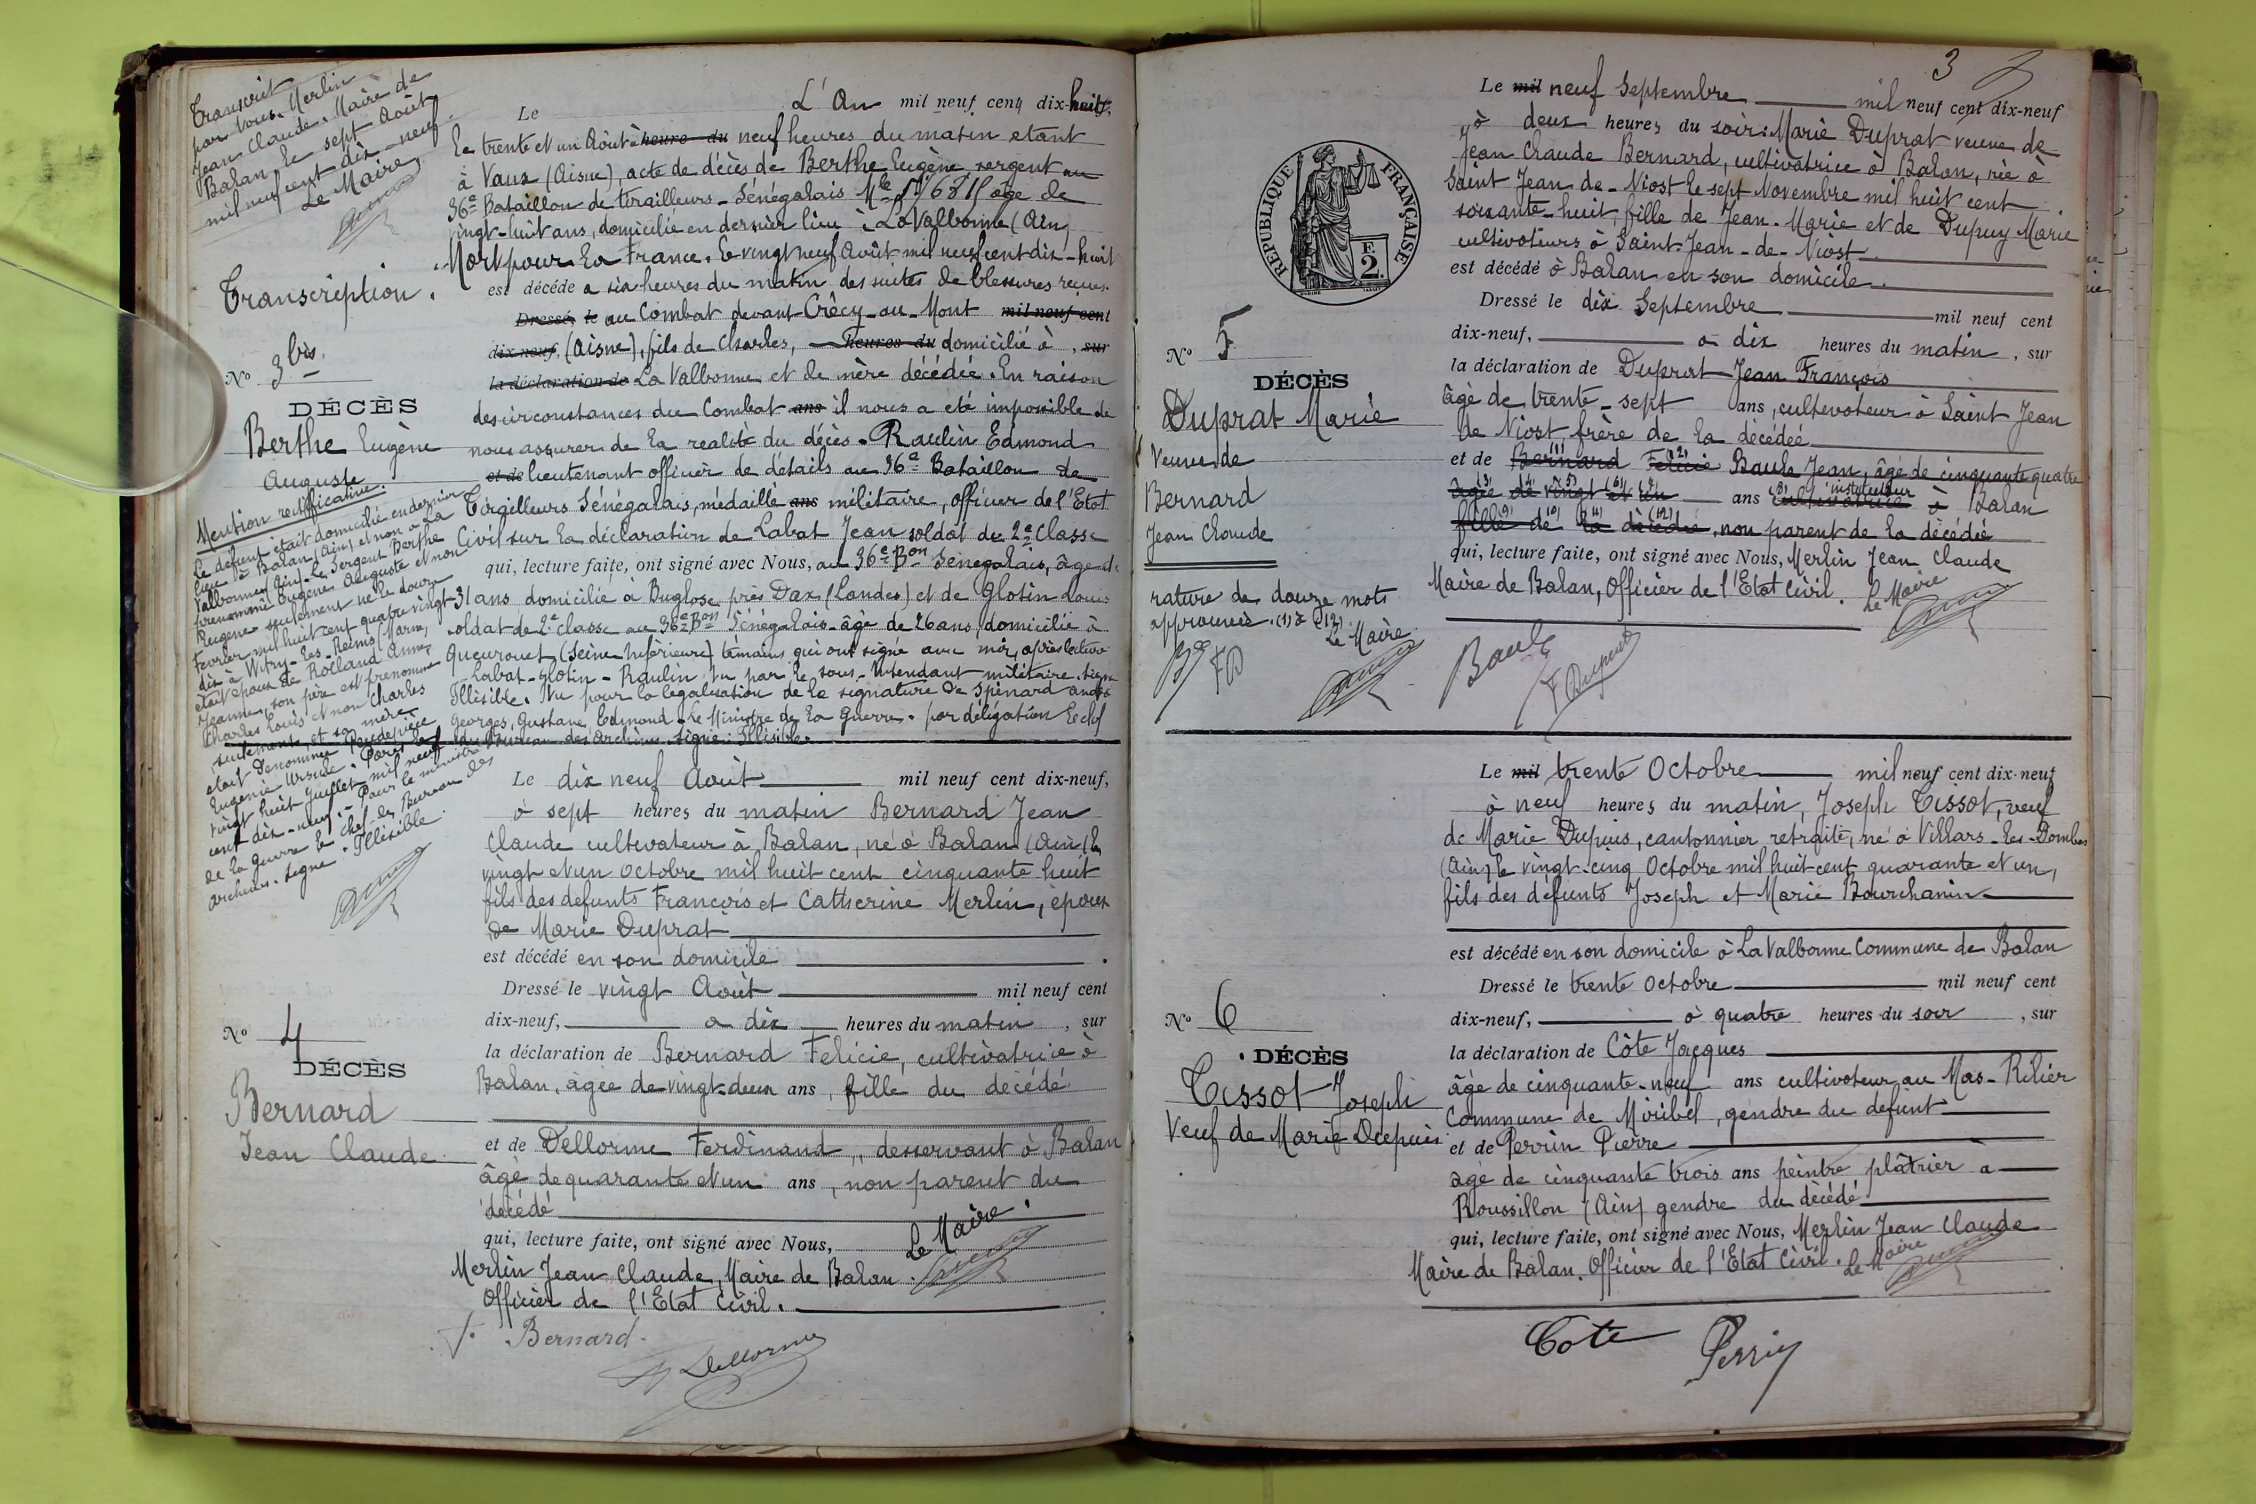 Transcrit
par nous. Merlin
Jean Claude. Maire de
Balan le sept Août
mil neuf cent dix-neuf.
Le Maire
Transcription.
No 3 bis
DÉCÈS
Berthe Eugène
Auguste
Mention rectificative.
Le défunt était domicilié en dernier
lieu à Balan (Ain) et non à La
Valbonne (Ain). Le Sergent Berthe
prénommé Eugène Auguste et non
Eugène seulement né le douze
Février mil huit cent quatre vingt
dix à Witry-les-Reims (Marne,
était époux de Rolland Anne
Jeanne, son père est prénommé
Charles Louis et non Charles
seulement, et sa mère
était dénommée
Eugénie Ursule. Paris le
vingt huit Juillet mil neuf
cent dix-neuf. Pour le ministre
de la guerre le chef du Bureau des
archives. signé: Illisible.
Le L'An mil neuf cent dix-huit,
le trente et un Août à heure du neuf heures du matin étant
à Vaux (Aisne), acte de décès de Berthe Eugène sergent au
36e Bataillon de tirailleurs-Sénégalais Mle âge de
vingt-huit ans, domicilié en dernier lieu à La Valbonne (Ain)
"Mort pour la France. le vingt neuf Août mil neuf cent dix-huit
est décédé a six heures du matin des suites de blessures reçues
Dressé le au Combat devant Crécy-au-Mont mil neuf cent
dix-neuf, (Aisne), fils de Charles, heures du domicilié à , sur
la déclaration de La Valbonne et de mère décédée. En raison
des circonstances du Combat ans il nous a été impossible de
nous assurer de la realité du décès. Raulin Edmond
et de lieutenant officier de détails au 36e Bataillon de
Tirailleurs Sénégalais, médaillé ans militaire, officier de l'Etat
Civil sur la déclaration de Labat Jean soldat de 2e Classe
qui, lecture faite, ont signé avec Nous, au 36e Bon Sénégalais, âge de
31 ans domicilié à Buglose près Dax (Landes) et de Glotin Louis
soldat de 2e classe au 36e Bon Sénégalais âgé de 26 ans, domicilié à
(Seine Inférieure) témoins qui ont signé avec moi, après lecture
Labat-Glotin-Raulin. Vu par le sous-intendant militaire. signé
Illisible. Vu pour la légalisation de la signature de Spénard andré
Georges, Gustave Edmond. Le Ministre de la Guerre. par délégation Le chef
du Bureau des Archives. signé: Illisible.
No 4
DÉCÈS
Bernard
Jean Claude
Le dix neuf Août mil neuf cent dix-neuf,
à sept heures du matin Bernard Jean
Claude cultivateur à Balan, né à Balan (Ain) le
vingt et un Octobre mil huit cent cinquante huit
fils des defunts François et Catherine Merlin, époux
de Marie Duprat
est décédé en son domicile .
Dressé le vingt Août mil neuf cent
dix-neuf, a dix heures du matin , sur
la déclaration de Bernard Félicie, cultivatrice à
Balan, âgée de vingt-deux ans, fille du décédé
et de Dellorme Ferdinand, desservant à Balan
âgé de quarante et un ans, non parent du
décédé
qui, lecture faite, ont signé avec Nous, Le Maire.
Merlin Jean Claude, Maire de Balan
Officier de l'Etat Civil.
F. Bernard
Dellorme
3
RÉPUBLIQUE FRANÇAISE
E
2.
No 5
DÉCÈS
Duprat Marie
Veuve de
Bernard
Jean Claude
rature de douze mots
approuvée. (1) à (12)
Le Maire
FD
Le mil neuf Septembre mil neuf cent dix-neuf
à deux heures du soir: Marie Duprat veuve de
Jean Claude Bernard, cultivatrice à Balan, née à
Saint Jean de-Niost le sept Novembre mil huit cent
soixante-huit, fille de Jean-Marie et de Dupuy Marie
cultivateurs à Saint-Jean-de-Niost
est décédé à Balan en son domicile.
Dressé le dix Septembre mil neuf cent
dix-neuf, à dix heures du matin , sur
la déclaration de Duprat Jean François
âgé de trente-sept ans, cultivateur à Saint Jean
de Niost, frère de la décédée
et de Bernard (1) Félicie (2) Baule Jean, âgé de cinquante quatre
âgée (3) de (4) vingt (5) et (6) un (7) ans cultivatrice (8) instituteur à Balan
fille (9) de (10) la (11) décédée (12), non parent de la décédée
qui, lecture faite, ont signé avec Nous, Merlin Jean Claude
Maire de Balan, Officier de l'Etat Civil. Le Maire
Baule
F Duprat
No 6
DÉCÈS
Tissot Joseph
Veuf de Marie Dupuis
Le mil trente Octobre mil neuf cent dix-neuf
à neuf heures du matin, Joseph Tissot, veuf
de Marie Dupuis, cantonnier retraité, né à Villars-les-Dombes
(Ain) le vingt-cinq Octobre mil huit cent quarante et un,
fils des défunts Joseph et Marie Bourchanin
est décédé en son domicile à La Valbonne Commune de Balan
Dressé le trente Octobre mil neuf cent
dix-neuf, à quatre heures du soir , sur
la déclaration de Côte Jacques
âgé de cinquante-neuf ans cultivateur au Mas-Rilier
Commune de Miribel, gendre du defunt
et de Perrin Pierre
âgé de cinquante trois ans peintre plâtrier à
Roussillon (Ain) gendre du décédé
qui, lecture faite, ont signé avec Nous, Merlin Jean Claude
Maire de Balan. Officier de l'Etat Civil. Le Maire
Cote
Perrin